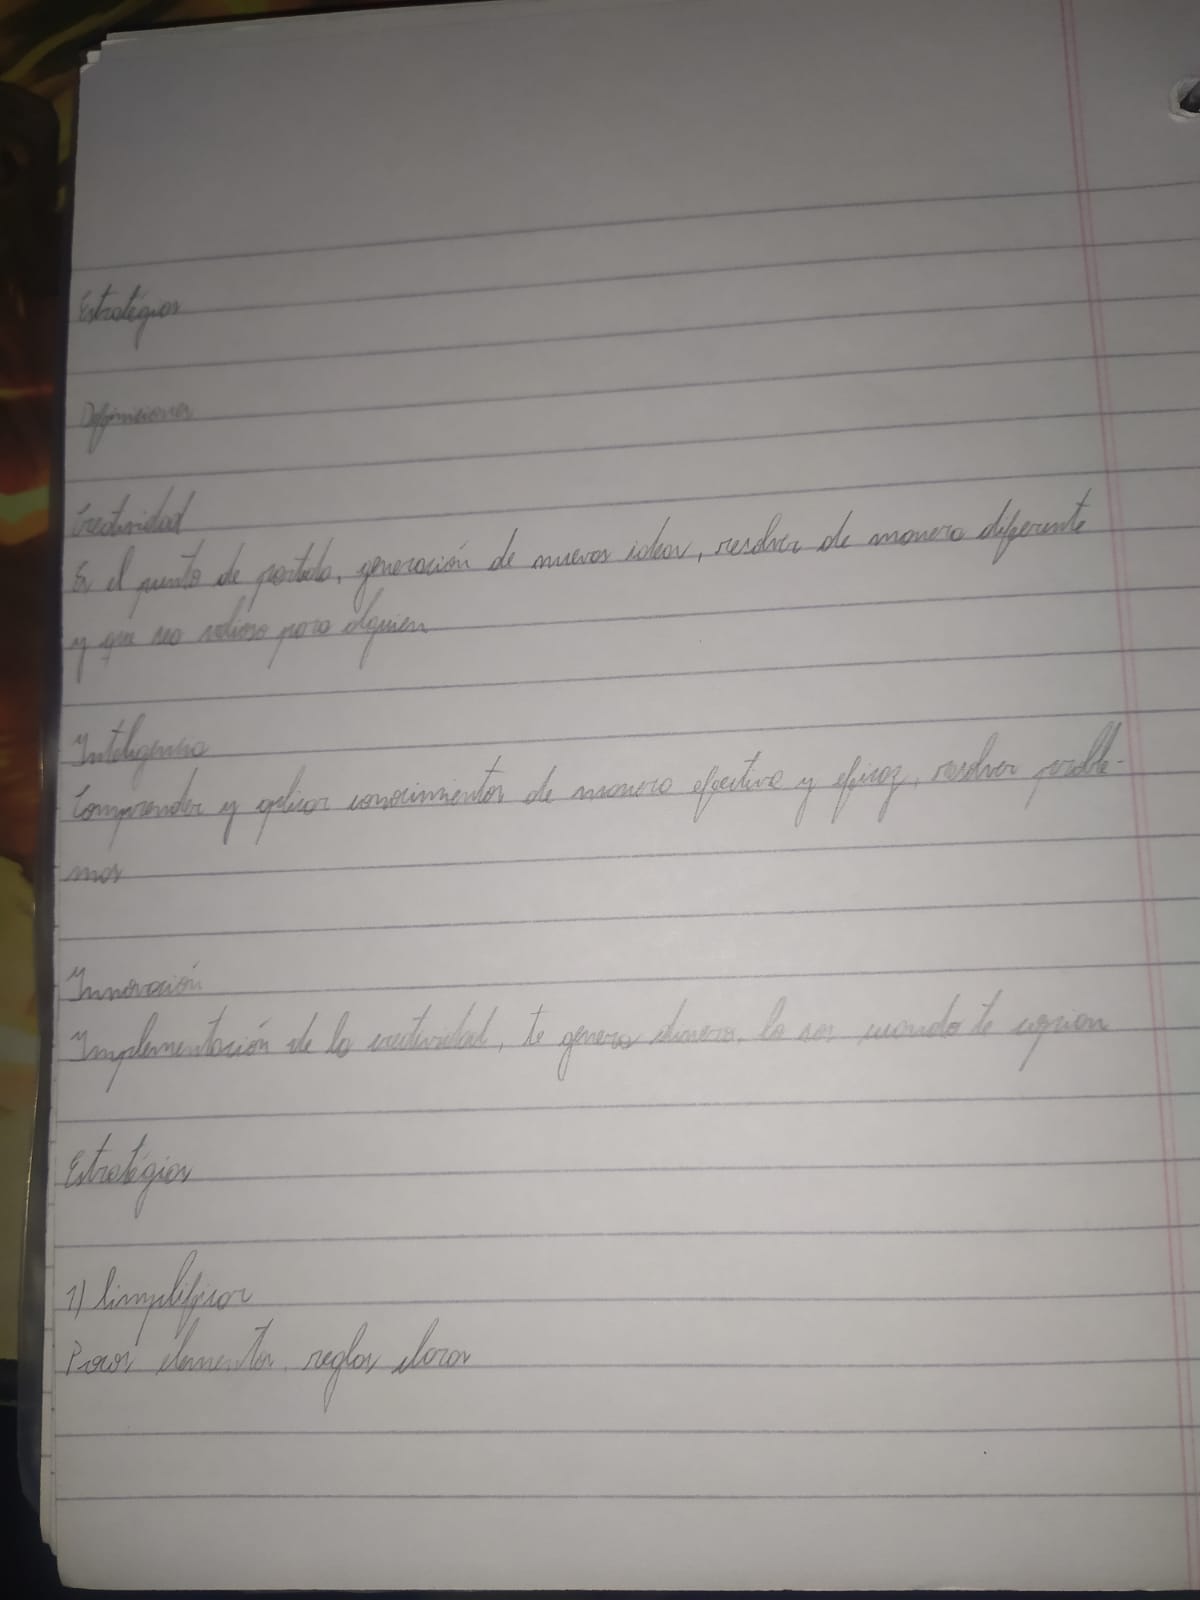 Estratégias
Definiciones
Creatividad
Es el punto de partida, generación de nuevas ideas, resolver de manera diferente
y que sea valioso para alguien
Inteligencia
Comprender y aplicar conocimientos de manera efectiva y eficaz, resolver proble-
mas
Innovación
Implementación de la creatividad, te genera dinero, lo cuando te
Estratégias
1) Simplificar
elementos, reglas claras